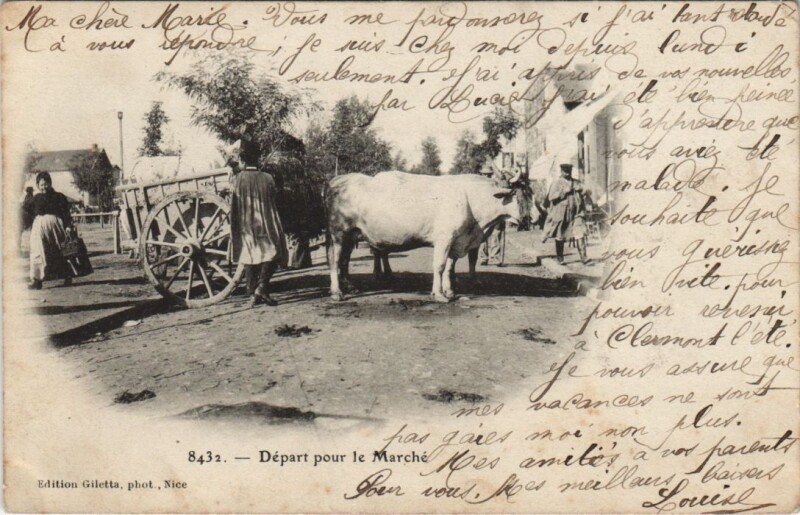 Ma chère Marie. Vous me pardonnerez si j'ai tant tardé
à vous répondre, je suis chez moi depuis lundi
seulement. J'ai appris de vos nouvelles
par Lucie j'ai été bien peinée
d'apprendre que
vous aviez été
malade. Je
souhaite que
vous guérissiez
bien vite. pour
pouvoir revenir
à Clermont l'été.
Je vous assure que
mes vacances ne sont
pas gaies moi non plus.
Mes amitiés à vos parents
Pour vous. Mes meilleurs baisers
Louise
8432. — Départ pour le Marché
Edition Giletta, phot., Nice